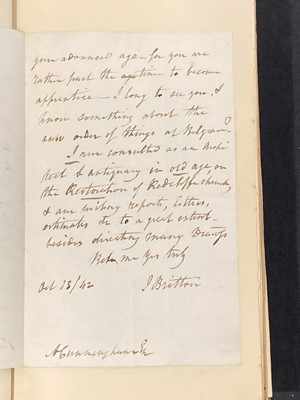 your advanced age – for you are
rather past the time to become
apprentice – I long to see you, &
know something about the
new order of things at Belgrave
I am consulted as an Archi
tect & antiquary in old age, on
the Restoration of Redcliffe church,
& am writing reports, letters,
estimates &c to a great extent –
besides directing many Drawgs
Bele me Yrs truly
Oct 15/42 J Britton
A Cunningham Esq